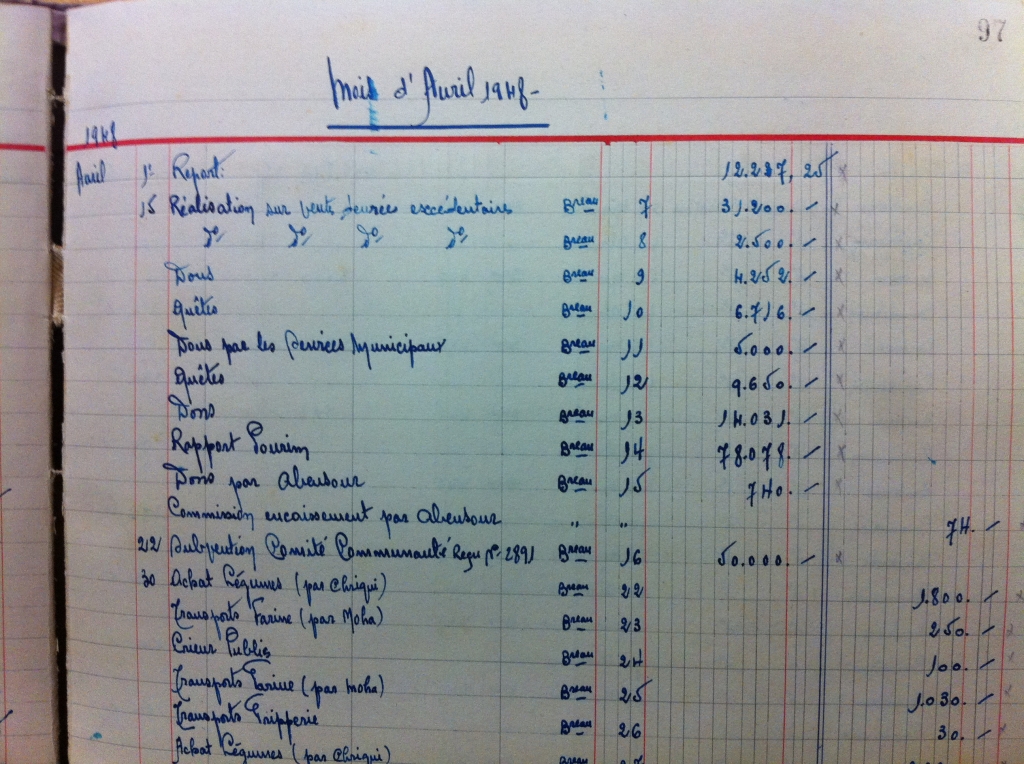 97
Mois d'Avril 1948-
1948
Avril 1er Report: 12.237, 25
15 Réalisation sur vente denrées excédentaires Breau 7 31.200. -
do do do do Breau 8 2.500. -
Dons Breau 9 4.252. -
Quêtes Breau 10 6.716. -
Dons par les Services Municipaux Breau 11 5.000. -
Quêtes Breau 12 9.650. -
Dons Breau 13 14.031. -
Rapport Pourim Breau 14 78.078. -
Dons par Abensour Breau 15 740. -
Commission encaissement par Abensour " " 74. -
22 Subvention Comité Communauté Reçu No 2891 Breau 16 50.000. -
30 Achat Légumes (par Chriqui) Breau 22 1.800. -
Transports Farine (par Moha) Breau 23 250. -
Crieur Public Breau 24 100. -
Transports Farine (par Moha) Breau 25 1.030. -
Transports Fripperie Breau 26 30. -
Achat Légumes (par Chriqui) Breau